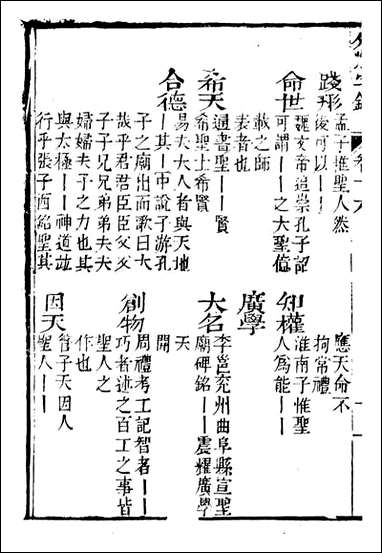 踐形
孟子惟聖人然
後可以丨丨
命世
魏文帝追崇孔子記
可謂丨丨之大聖億
載之師
表者也
希天
通書聖丨丨賢
希聖士希賢
合德
易夫大人者與天地
丨其丨中說子游孔
子之廟出而歌曰大
哉乎君君臣臣父父
子子兄兄弟弟夫夫
婦婦夫子之力也其
與太極丨丨神道並
行乎張子西銘聖其
應天命不
拘常禮
知權
淮南子惟聖
人爲能丨丨
廣學
大名
李邕兖州曲阜縣宣聖
廟碑銘丨丨震耀廣學
天
開
創物
周禮考工記智者丨丨
巧者述之百工之事皆
聖人之
作也
因天
管子天因人
聖人丨丨